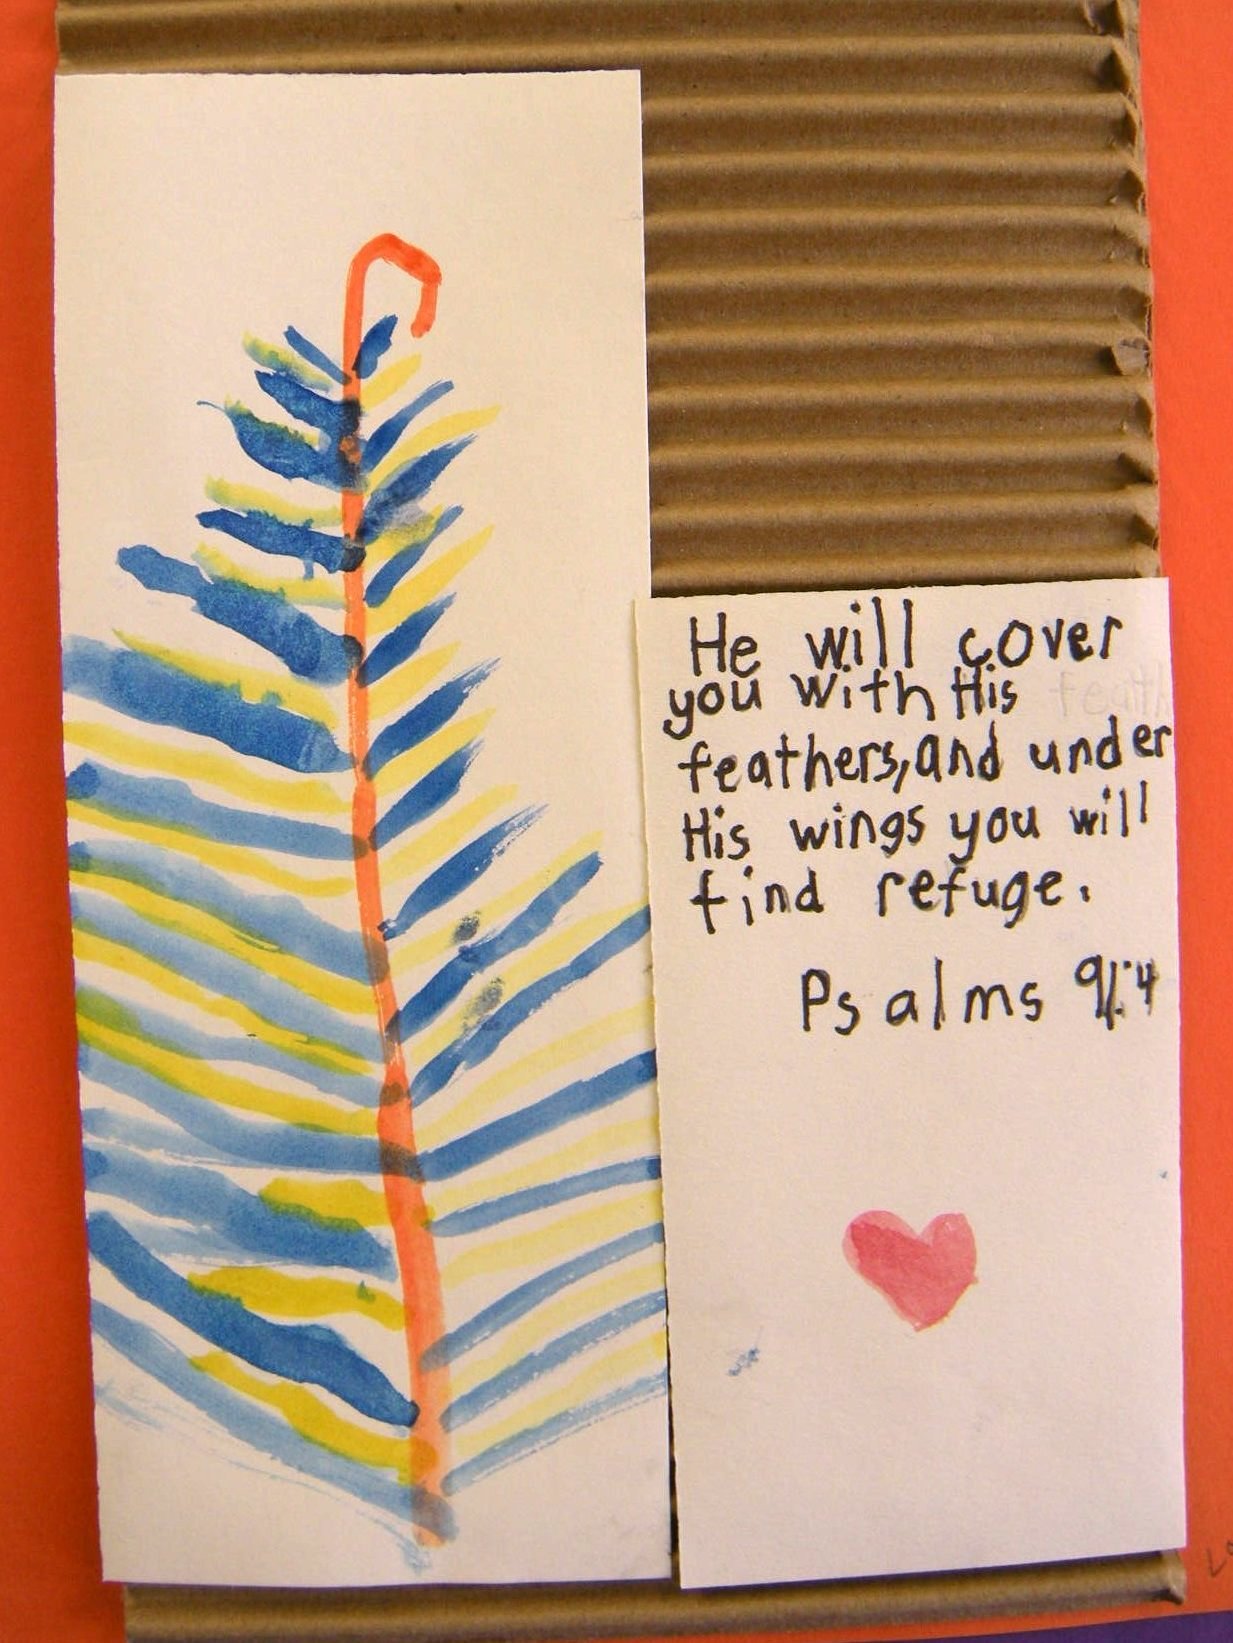 He will cover
you with His feath
feathers, and under
His wings you will
find refuge.
Psalms 91:4